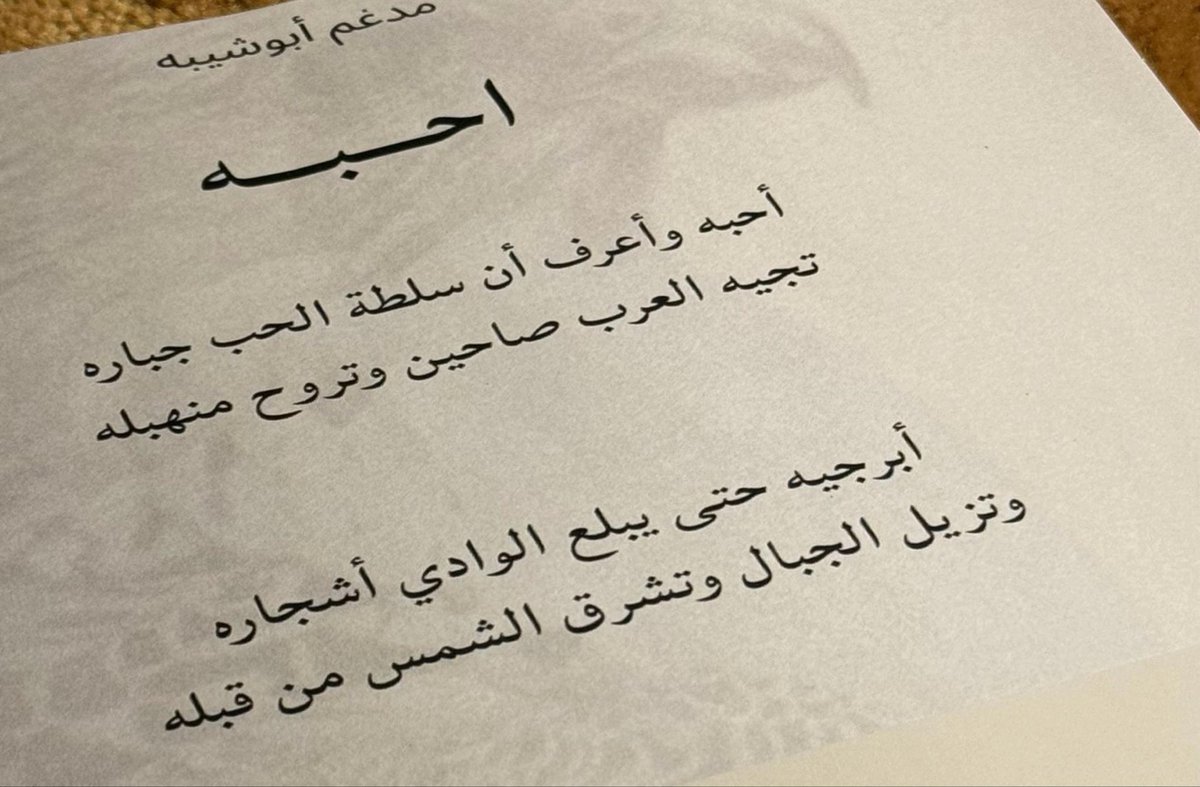 مدغم أبوشيبه
احبه
أحبه وأعرف أن سلطة الحب جباره
تجيه العرب صاحين وتروح منهبله
أبرجيه حتى يبلع الوادي أشجاره
وتزيل الجبال وتشرق الشمس من قبله